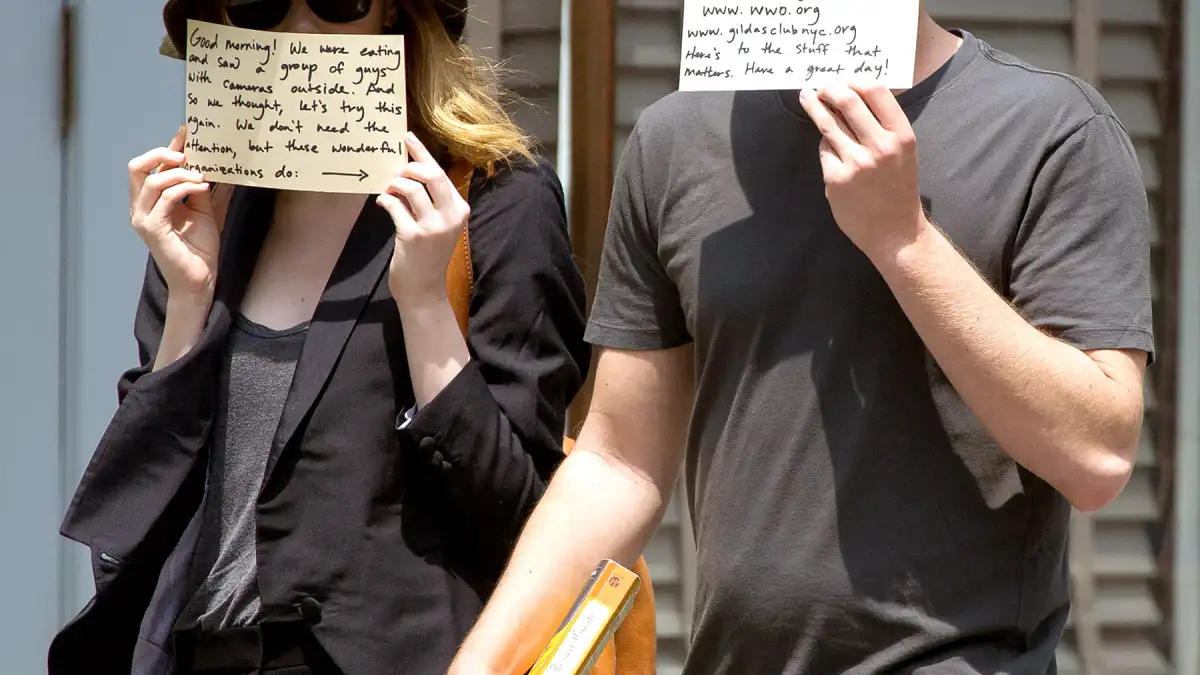 Good morning! We were eating
and saw a group of guys
with cameras outside. And
so we thought, let's try this
again. We don't need the
attention, but these wonderful
organizations do: →
www.wwo.org
www.gildasclubnyc.org
Here's to the stuff that
matters. Have a great day!